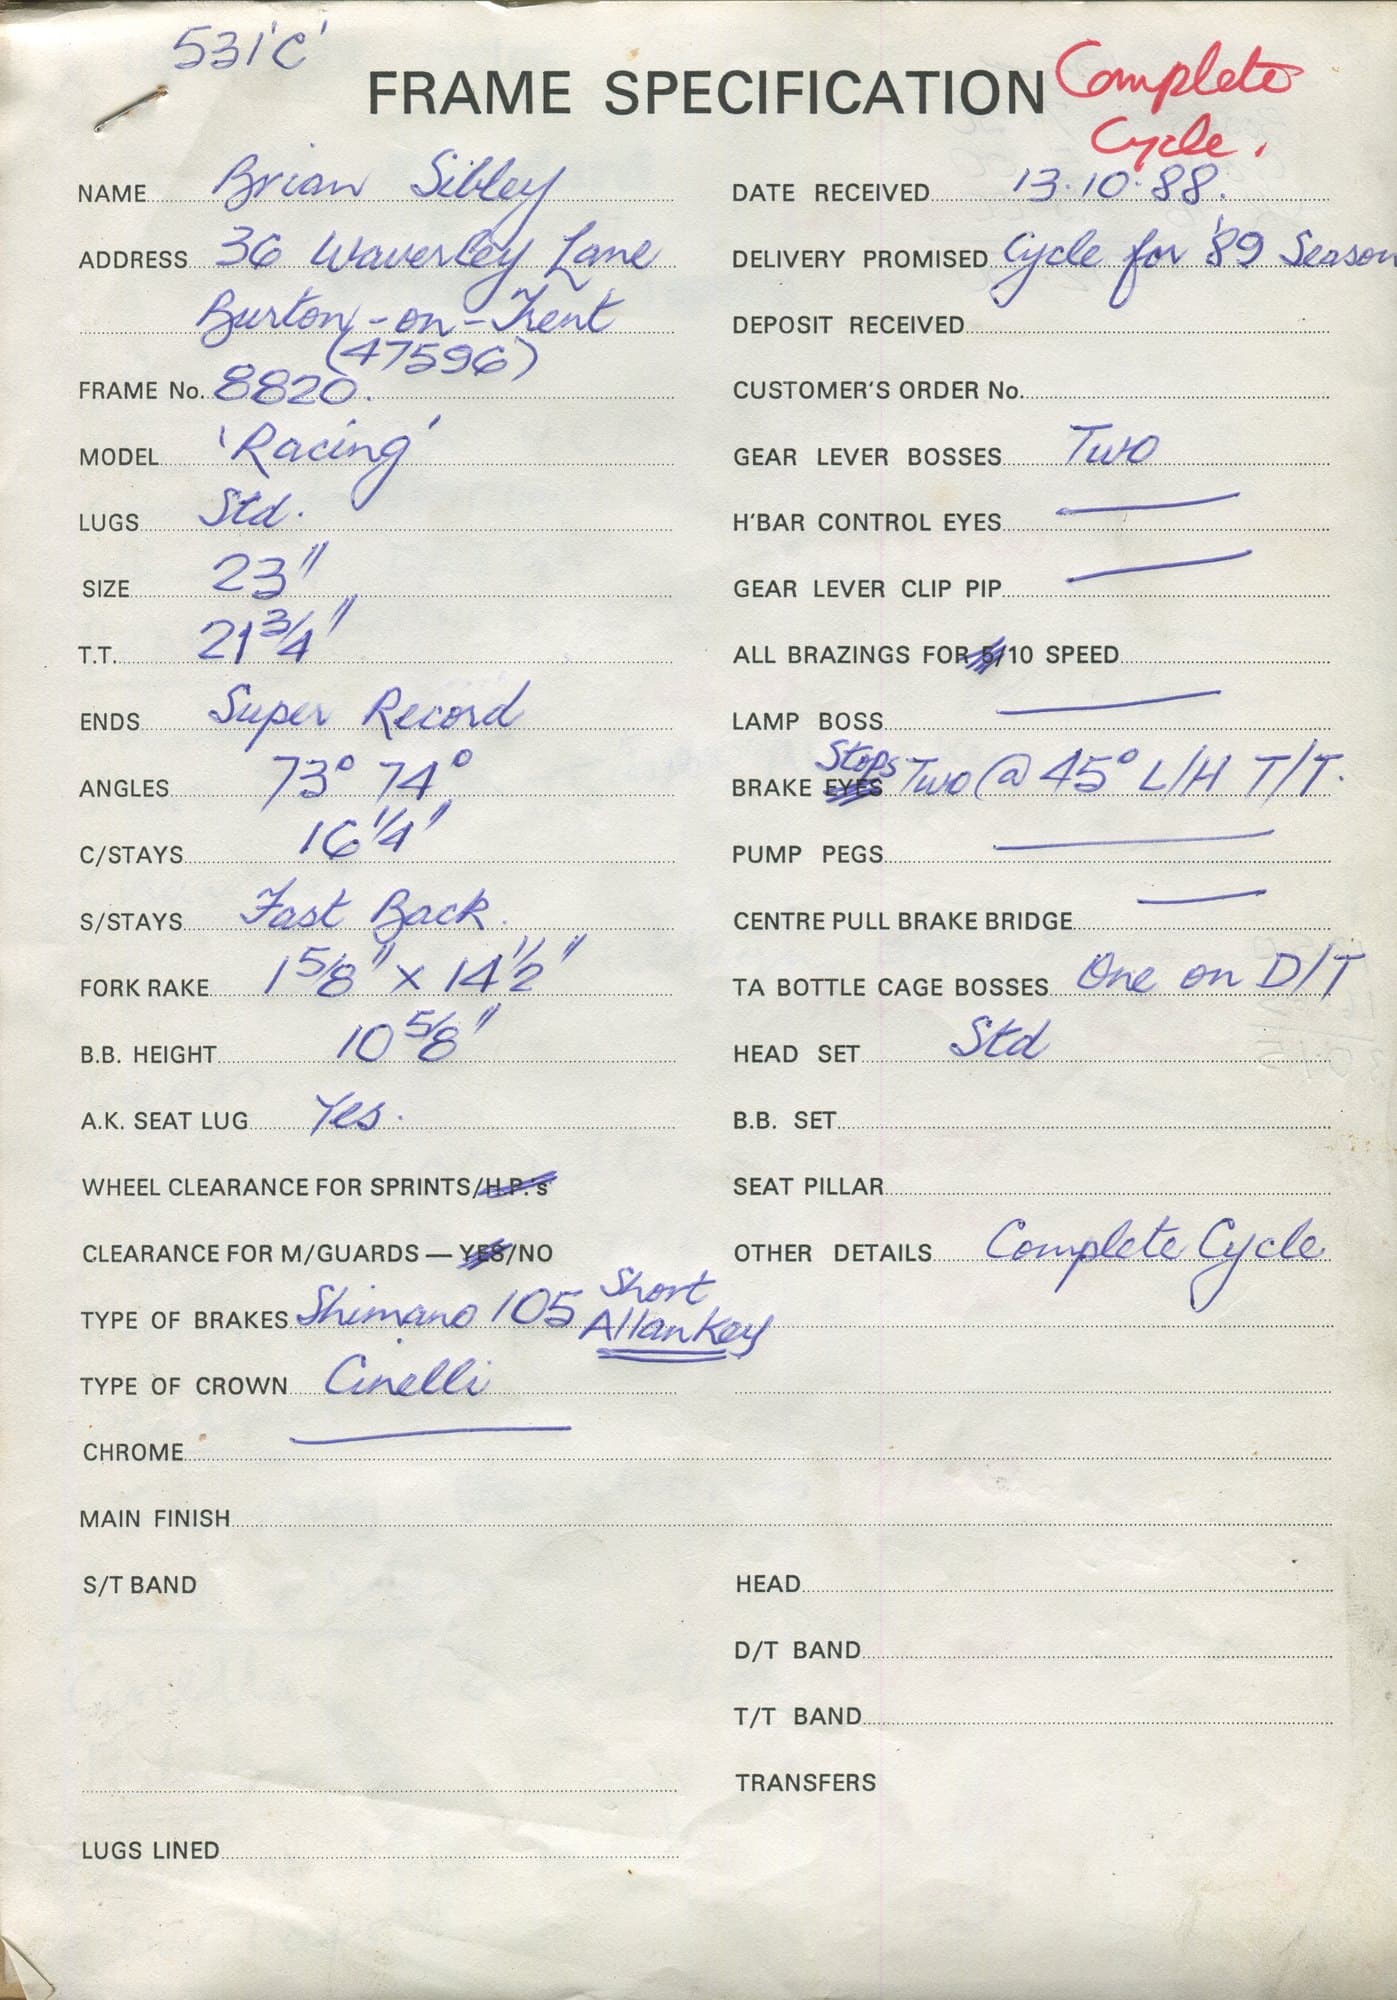 531'C'
FRAME SPECIFICATION
Complete
Cycle.
NAME Brian Sibley
ADDRESS 36 Waverley Lane
Burton-on-Trent
(47596)
FRAME No. 8820.
MODEL 'Racing'
LUGS Std.
SIZE 23"
T.T. 21 3/4"
ENDS Super Record
ANGLES 73° 74°
C/STAYS 16 1/4"
S/STAYS Fast Back.
FORK RAKE 1 5/8" x 14 1/2"
B.B. HEIGHT 10 5/8"
A.K. SEAT LUG Yes.
WHEEL CLEARANCE FOR SPRINTS/H.P.'s
CLEARANCE FOR M/GUARDS — YES/NO
TYPE OF BRAKES Shimano 105 Short
Allankey
TYPE OF CROWN Cinelli
CHROME
MAIN FINISH
S/T BAND
LUGS LINED
DATE RECEIVED 13.10.88.
DELIVERY PROMISED Cycle for '89 Season
DEPOSIT RECEIVED
CUSTOMER'S ORDER No.
GEAR LEVER BOSSES Two
H'BAR CONTROL EYES
GEAR LEVER CLIP PIP
ALL BRAZINGS FOR 5/10 SPEED
LAMP BOSS
BRAKE EYES Stops Two @ 45° L/H T/T.
PUMP PEGS
CENTRE PULL BRAKE BRIDGE
TA BOTTLE CAGE BOSSES One on D/T
HEAD SET Std
B.B. SET
SEAT PILLAR
OTHER DETAILS Complete Cycle
HEAD
D/T BAND
T/T BAND
TRANSFERS